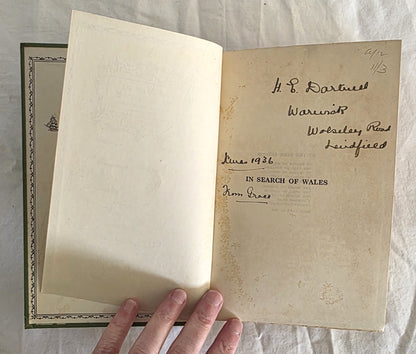 H. E. Dartnell
Warwick
Wolseley Road
Lindfield
Xmas 1936
IN SEARCH OF WALES
From Grace